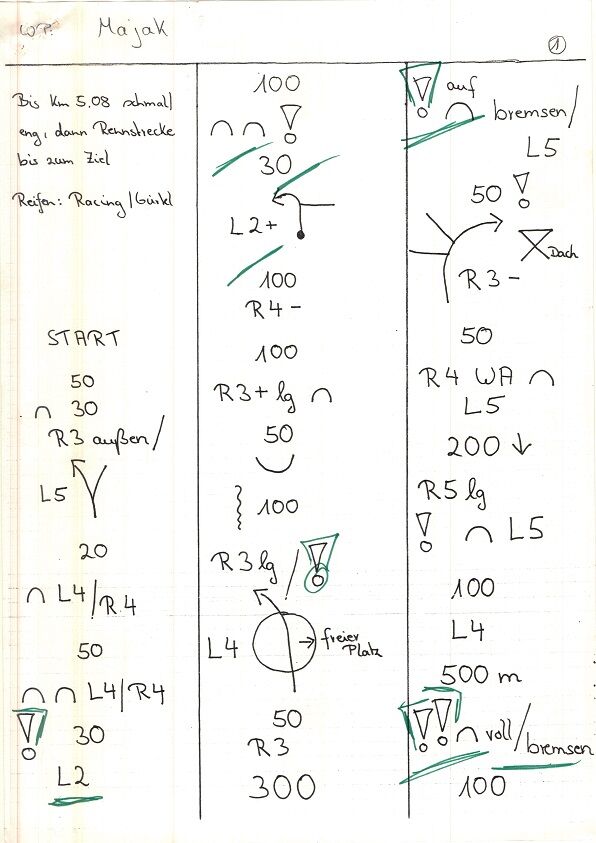 WP. Majak
1
Bis Km 5,08 schmal/
eng, dann Rennstrecke
bis zum Ziel
Reifen: Racing/Gürkl
START
50
30
R3 außen/
L5
20
L4/R4
50
L4/R4
! 30
L2
100
!
30
L2+
100
R4-
100
R3+ lg
50
100
R3 lg / !
L4 freier
Platz
50
R3
300
! auf
bremsen/
L5
50 !
Dach
R3-
50
R4 WA
L5
200 ↓
R5 lg
! L5
100
L4
500 m
!! voll/bremsen
100